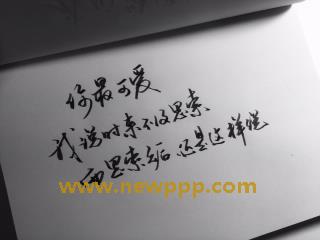 你最可爱
我说时来不及思索
而思索之后 还是这样说
www.newppp.com